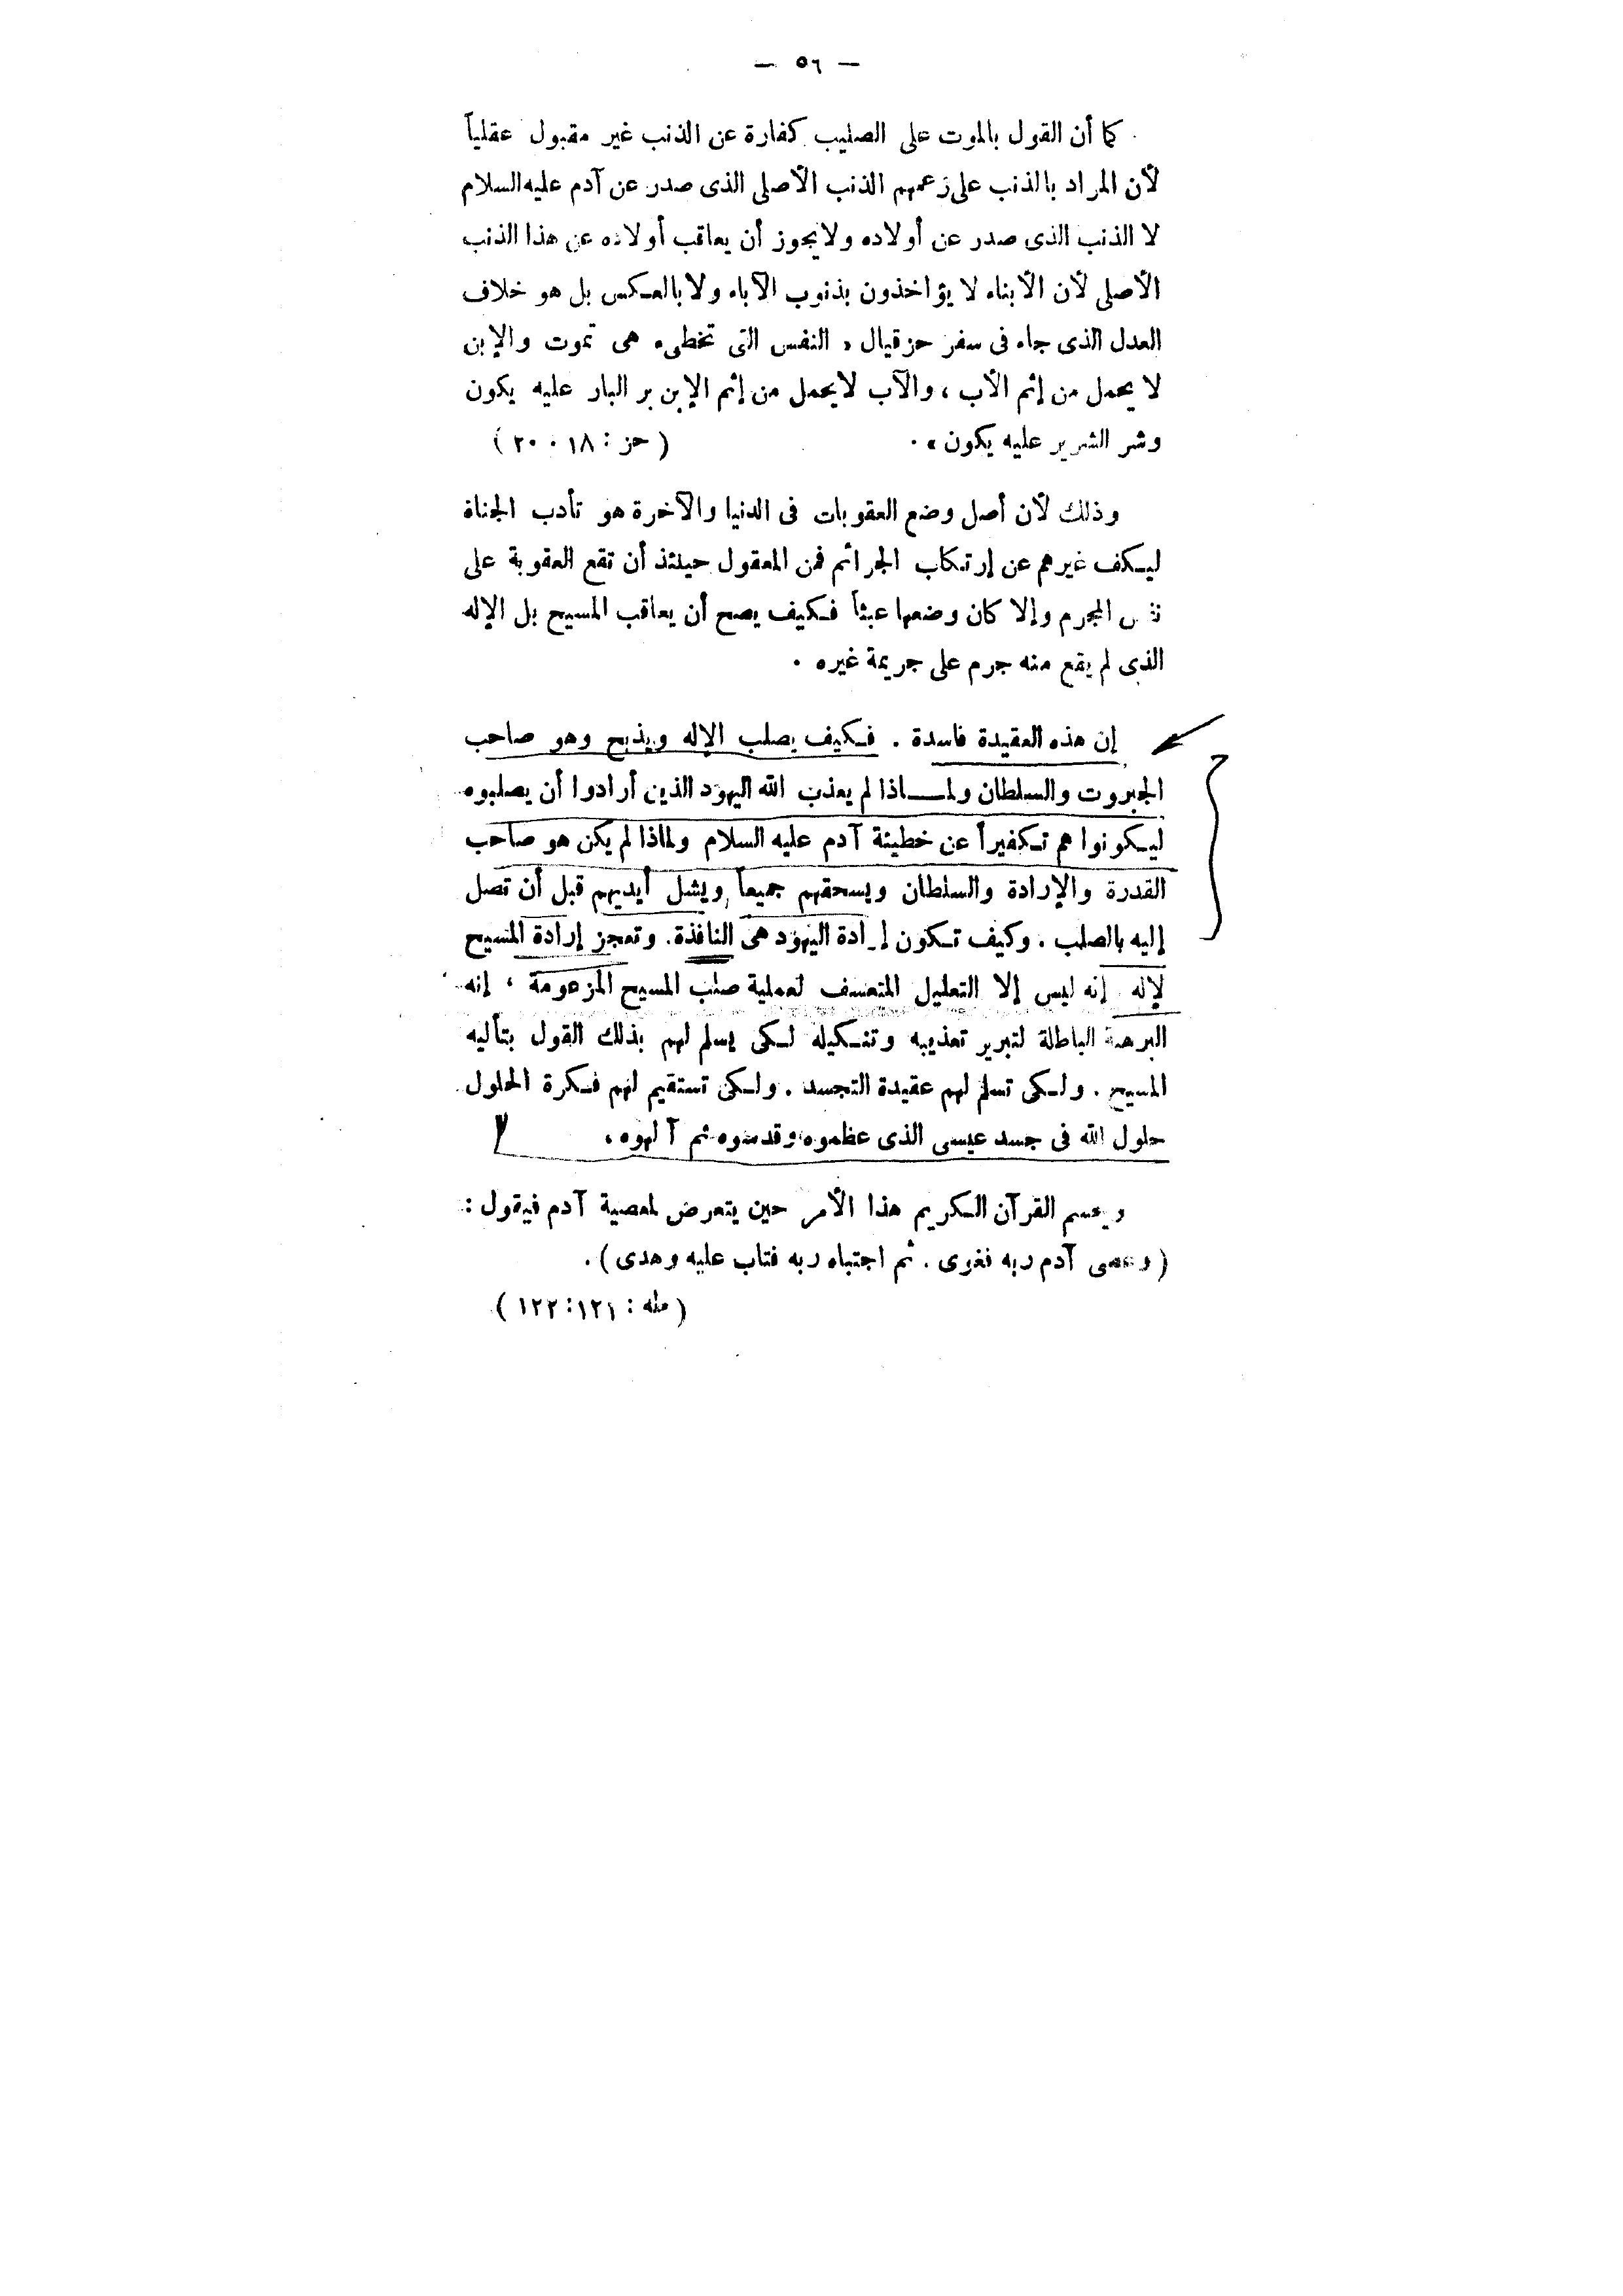 — ٥٦ —
كما أن القول بالموت على الصليب كفارة عن الذنب غير مقبول عقلياً
لأن المراد بالذنب على زعمهم الذنب الأصلى الذى صدر عن آدم عليه السلام
لا الذنب الذى صدر عن أولاده ولايجوز أن يعاقب أولاده عن هذا الذنب
الأصلى لأن الأبناء لا يؤاخذون بذنوب الآباء ولا بالعكس بل هو خلاف
العدل الذى جاء فى سفر حزقيال « النفس التى تخطىء هى تموت والإبن
لا يحمل من إثم الأب ، والآب لايحمل من إثم الإبن بر البار عليه يكون
وشر الشرير عليه يكون » . ( حز : ١٨ . ٢٠ )
وذلك لأن أصل وضع العقوبات فى الدنيا والآخرة هو تأدب الجناة
ليكف غيرهم عن إرتكاب الجرائم فمن المعقول حينئذ أن تقع العقوبة على
المجرم وإلا كان وضعها عبثاً فكيف يصح أن يعاقب المسيح بل الإله
الذى لم يقع منه جرم على جريمة غيره .
إن هذه العقيدة فاسدة . فكيف يصلب الإله ويذبح وهو صاحب
الجبروت والسلطان ولماذا لم يعذب الله اليهود الذين أرادوا أن يصلبوه
ليكونوا هم تكفيراً عن خطيئة آدم عليه السلام ولماذا لم يكن هو صاحب
القدرة والإرادة والسلطان ويسحقهم جميعاً ويشل أيديهم قبل أن تصل
إليه بالصلب . وكيف تكون إرادة اليهود هى النافذة . وتعجز إرادة المسيح
لإله إنه ليس إلا التعليل المتعسف لعملية صلب المسيح المزعومة ، إنه
البرهنة الباطلة لتبرير تعذيبه وتنكيله لكى يسلم لهم بذلك القول بتأليه
المسيح . ولكى تسلم لهم عقيدة التجسد . ولكى تستقيم لهم فكرة الحلول
حلول الله فى جسد عيسى الذى عظموه وقدسوه ثم آلهوه ،
ويحسم القرآن الكريم هذا الأمر حين يتعرض لمعصية آدم فيقول :
( وعصى آدم ربه فغوى . ثم اجتباه ربه فتاب عليه وهدى ) .
( طه : ١٢١ : ١٢٢ )